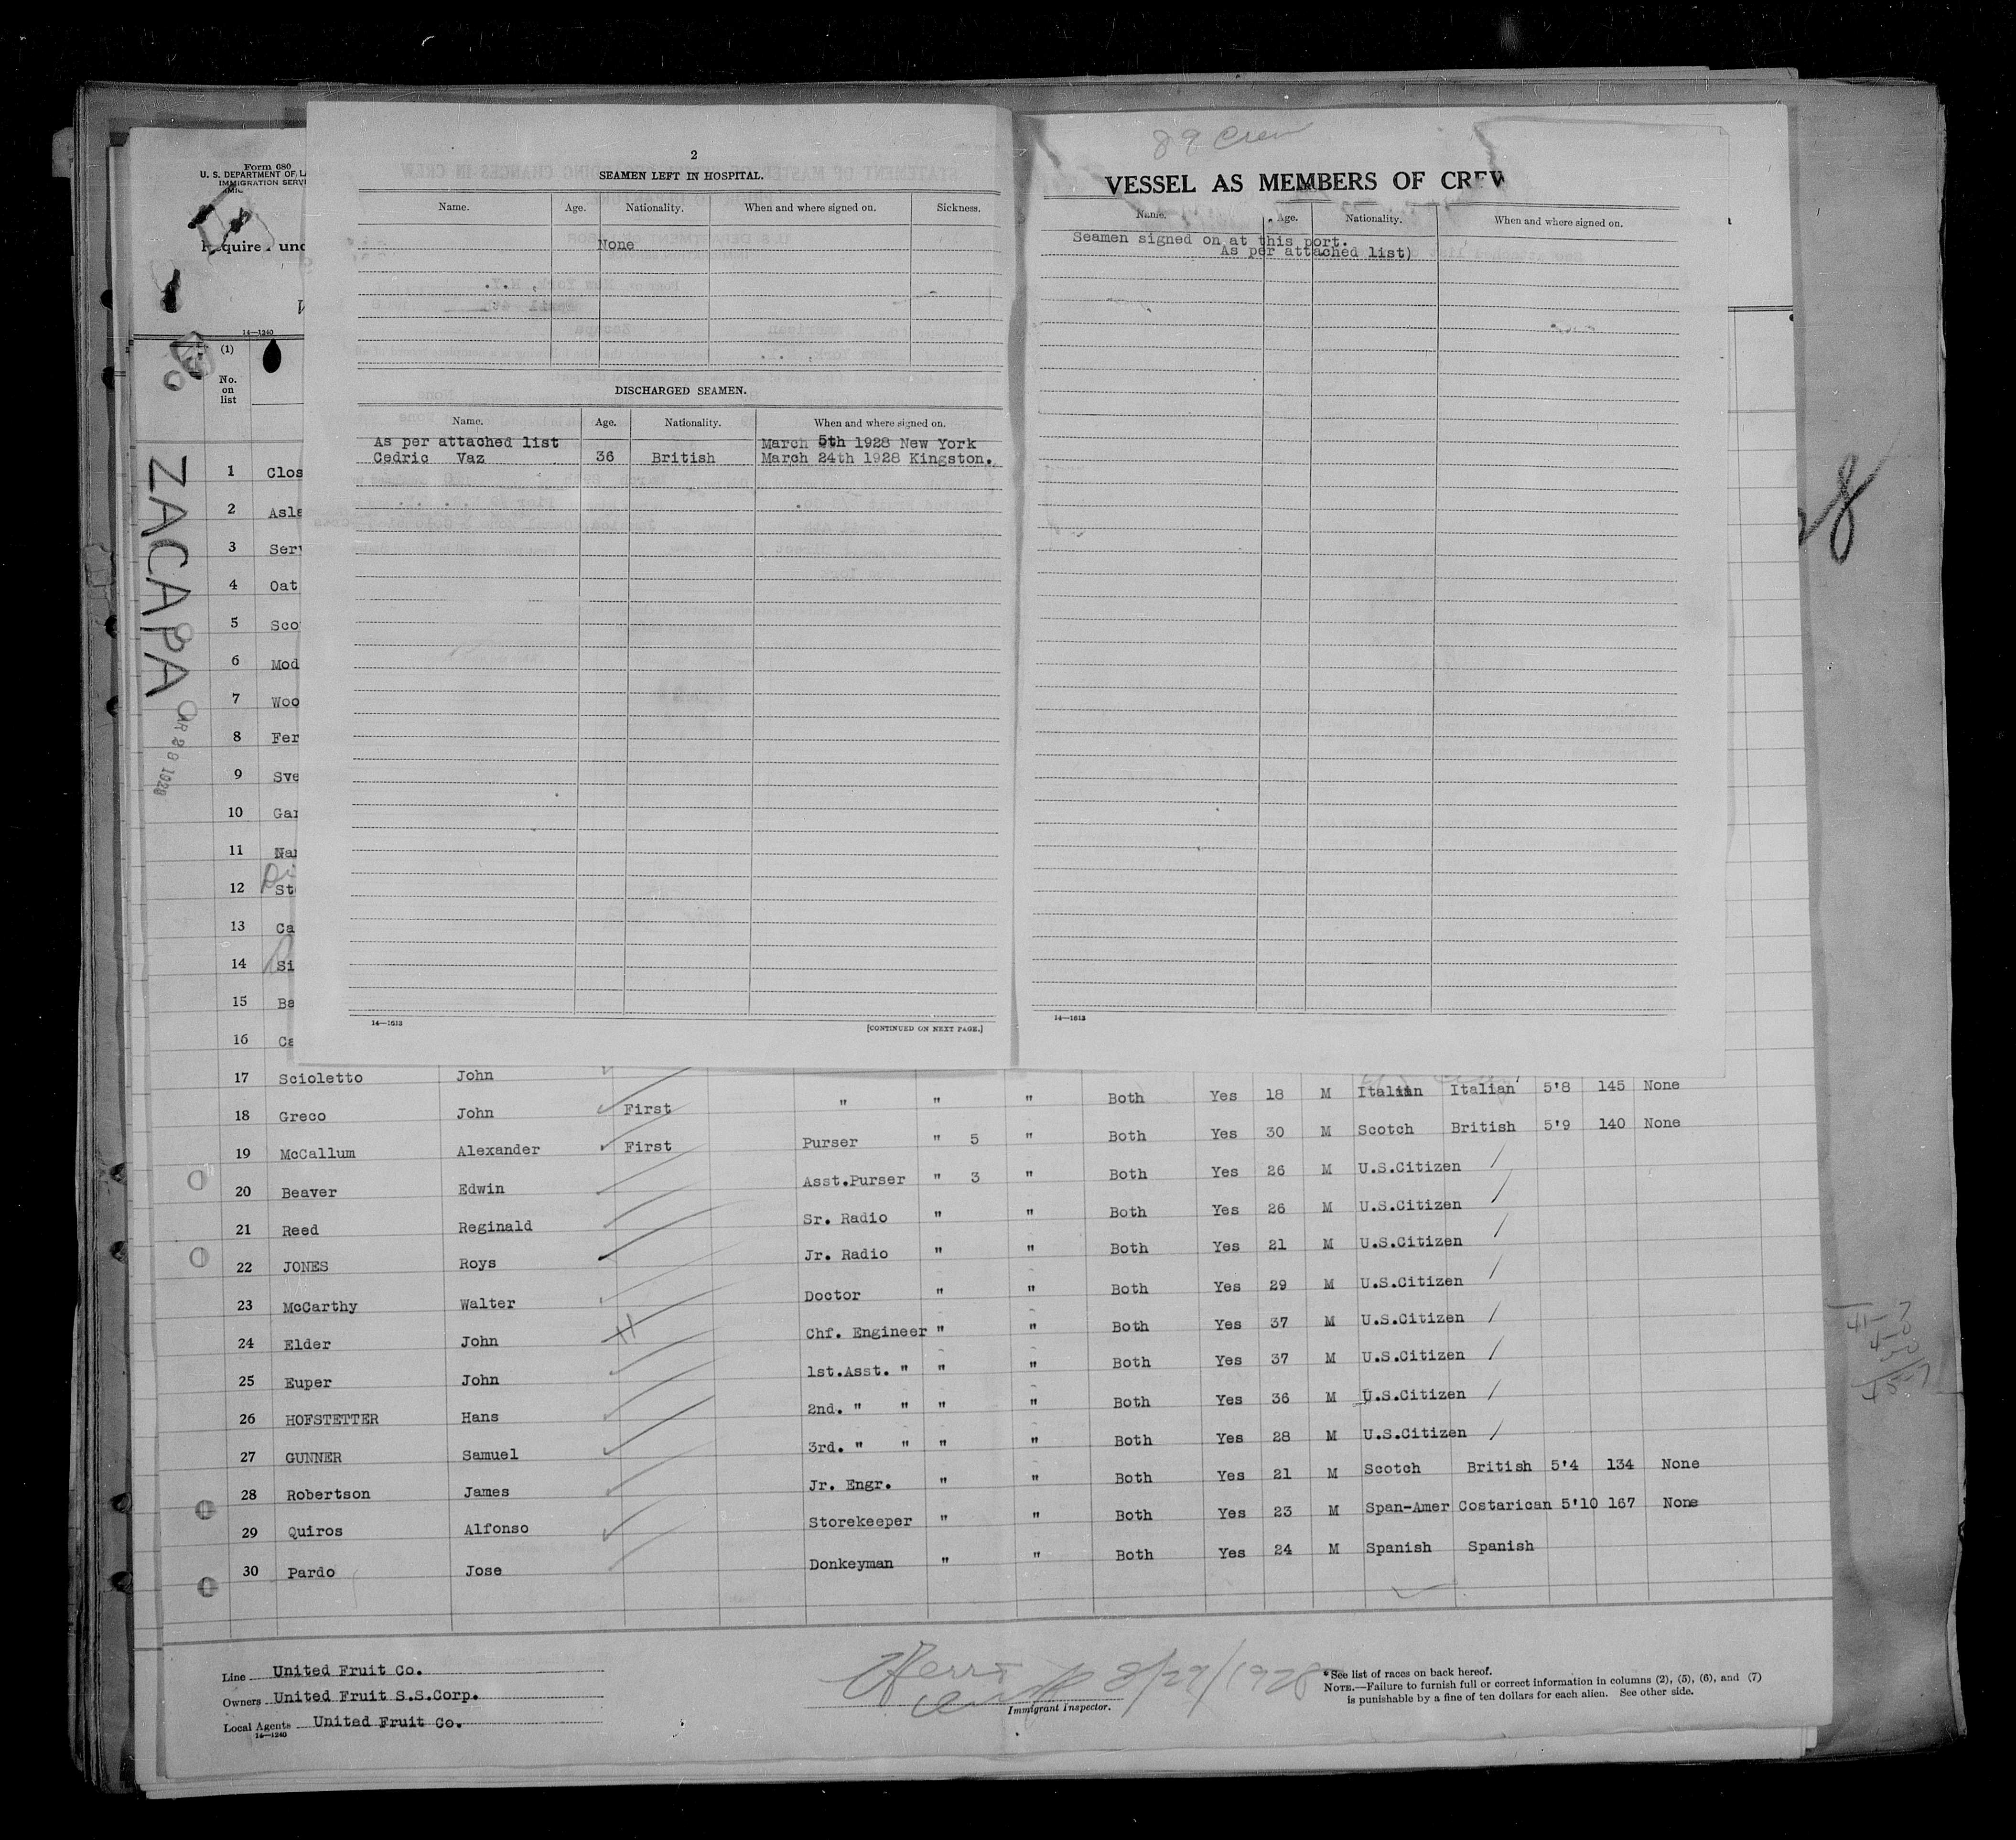 Form 680
U. S. DEPARTMENT OF LA
IMMIGRATION SERVI
Required und
14—1240
(1)
No.
on
list
ZACAPA
MAR 28 1928
1 Clos
2 Asla
3 Serv
4 Oat
5 Sco
6 Mod
7 Woo
8 Fer
9 Sve
10 Gar
11 Nar
12 Ste
13 Ca
14 Si
15 Ba
16 Ca
2
SEAMEN LEFT IN HOSPITAL.
Name. Age. Nationality. When and where signed on. Sickness.
None
DISCHARGED SEAMEN.
Name. Age. Nationality. When and where signed on.
As per attached list March 5th 1928 New York
Cedric Vaz 36 British March 24th 1928 Kingston.
14—1613
[CONTINUED ON NEXT PAGE.]
89 Crew
VESSEL AS MEMBERS OF CREW
Name. Age. Nationality. When and where signed on.
Seamen signed on at this port.
As per attached list)
14—1613
17 Scioletto John
18 Greco John First " " " Both Yes 18 M Italian Italian 5'8 145 None
19 McCallum Alexander First Purser " 5 " Both Yes 30 M Scotch British 5'9 140 None
20 Beaver Edwin Asst.Purser " 3 " Both Yes 26 M U.S.Citizen
21 Reed Reginald Sr. Radio " " Both Yes 26 M U.S.Citizen
22 JONES Roys Jr. Radio " " Both Yes 21 M U.S.Citizen
23 McCarthy Walter Doctor " " Both Yes 29 M U.S.Citizen
24 Elder John Chf. Engineer " " Both Yes 37 M U.S.Citizen
25 Euper John 1st.Asst. " " " Both Yes 37 M U.S.Citizen
26 HOFSTETTER Hans 2nd. " " " " Both Yes 36 M U.S.Citizen
27 GUNNER Samuel 3rd. " " " " Both Yes 28 M U.S.Citizen
28 Robertson James Jr. Engr. " " Both Yes 21 M Scotch British 5'4 134 None
29 Quiros Alfonso Storekeeper " " Both Yes 23 M Span-Amer Costarican 5'10 167 None
30 Pardo Jose Donkeyman " " Both Yes 24 M Spanish Spanish
Line United Fruit Co.
Owners United Fruit S.S.Corp.
Local Agents United Fruit Co.
14—1240
3/29/1928
Immigrant Inspector.
* See list of races on back hereof.
NOTE.—Failure to furnish full or correct information in columns (2), (5), (6), and (7)
is punishable by a fine of ten dollars for each alien. See other side.